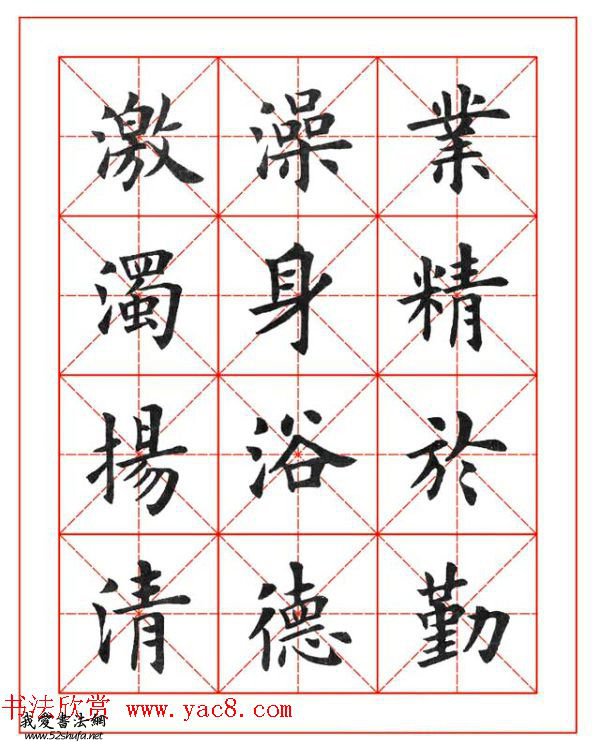 業精於勤
澡身浴德
激濁揚清
书法欣赏 www.yac8.com
我爱书法網
www.52shufa.net